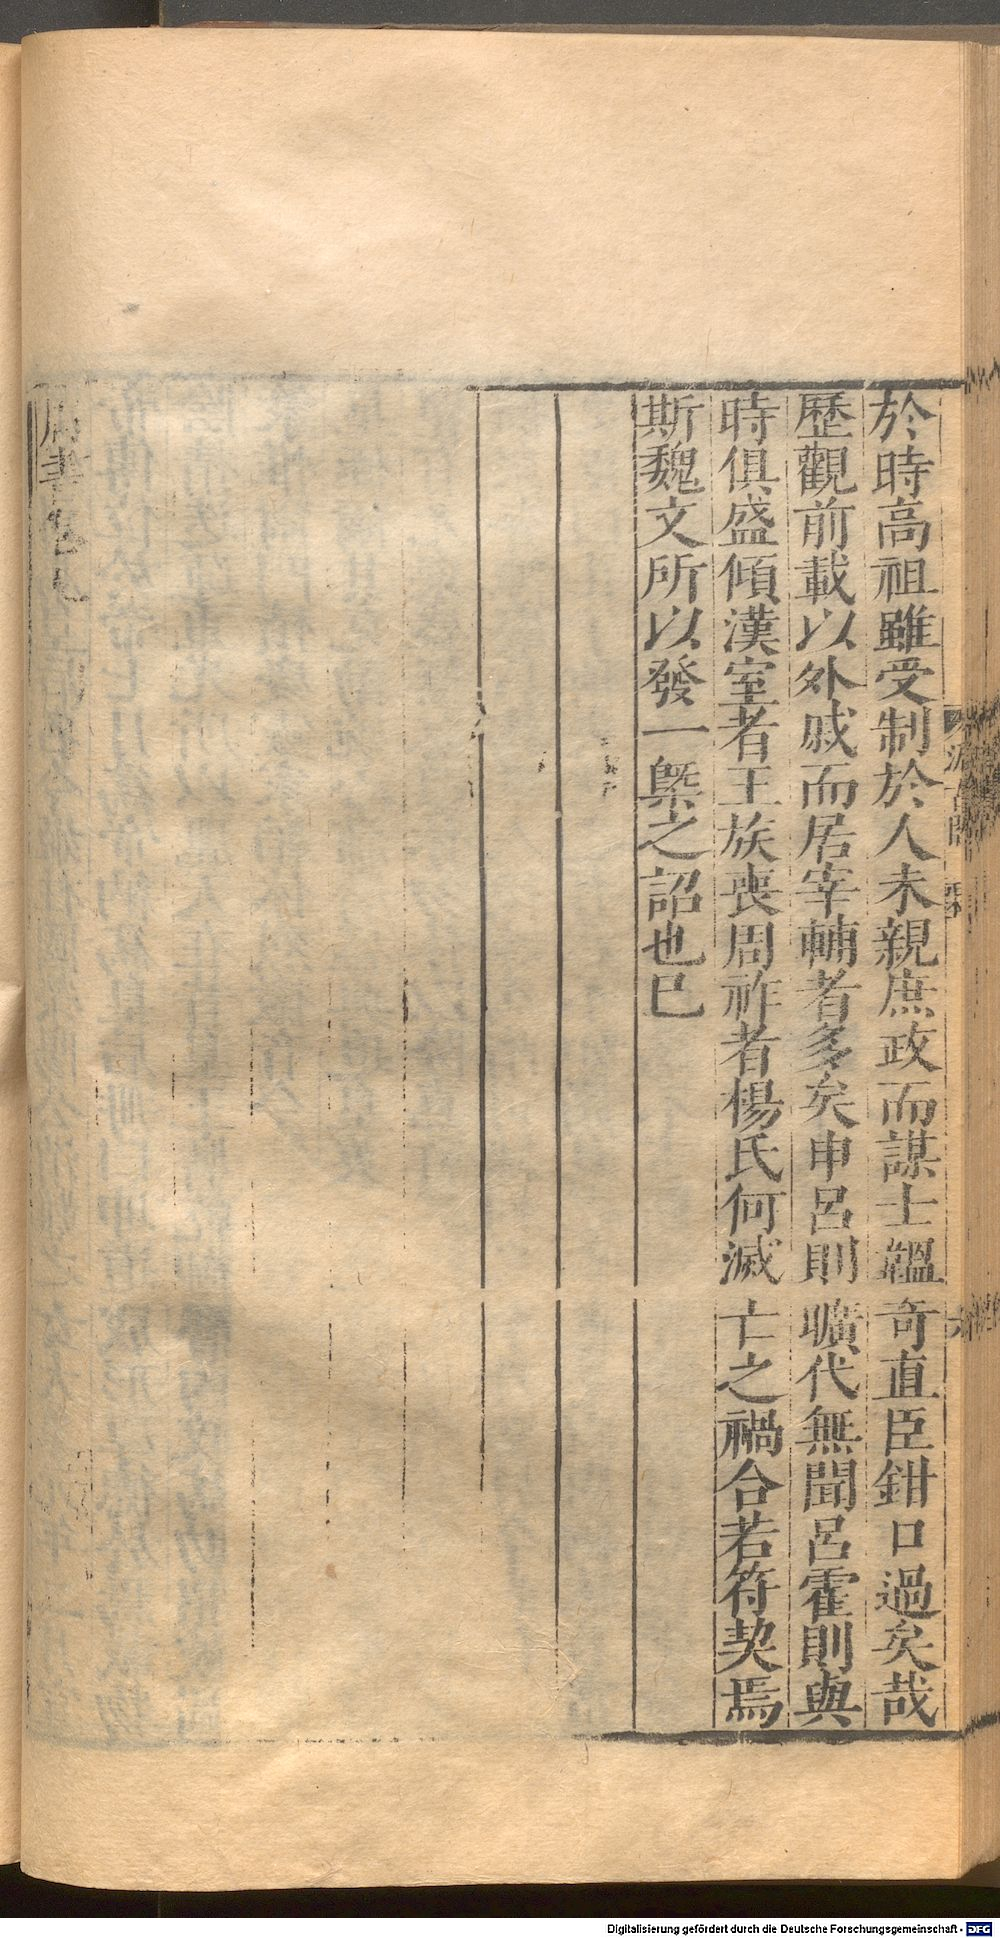 於時高祖雖受制於人未親庶政而謀士韞奇直臣鉗口過矣哉
歷觀前載以外戚而居宰輔者多矣申呂則曠代無聞呂霍則與
時俱盛傾漢室者王族喪周祚者楊氏何滅亡之禍合若符契焉
斯魏文所以發一槩之詔也已
周書卷九
Digitalisierung gefördert durch die Deutsche Forschungsgemeinschaft - DFG